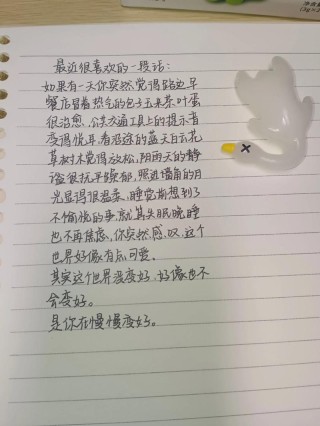 最近很喜欢的一段话:
如果有一天你突然觉得路边早
餐店冒着热气的包子玉米茶叶蛋
很治愈,公共交通工具上的提示音
变得悦耳,看沿途的蓝天白云花
草树木觉得放松,阴雨天的静
谧被抚平躁郁,照进墙角的月
光显得很温柔,睡觉前想到了
不愉快的事,就算失眠晚睡
也不再焦虑,你突然感叹,这个
世界好像有点可爱。
其实这个世界没变好,好像也不
会变好。
是你在慢慢变好。